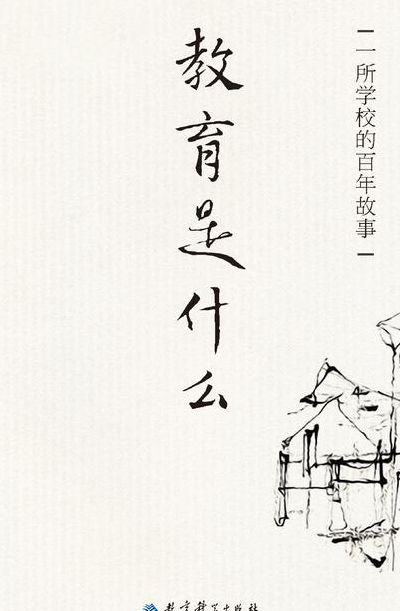 教育是什么
一所学校的百年故事
教育科学出版社